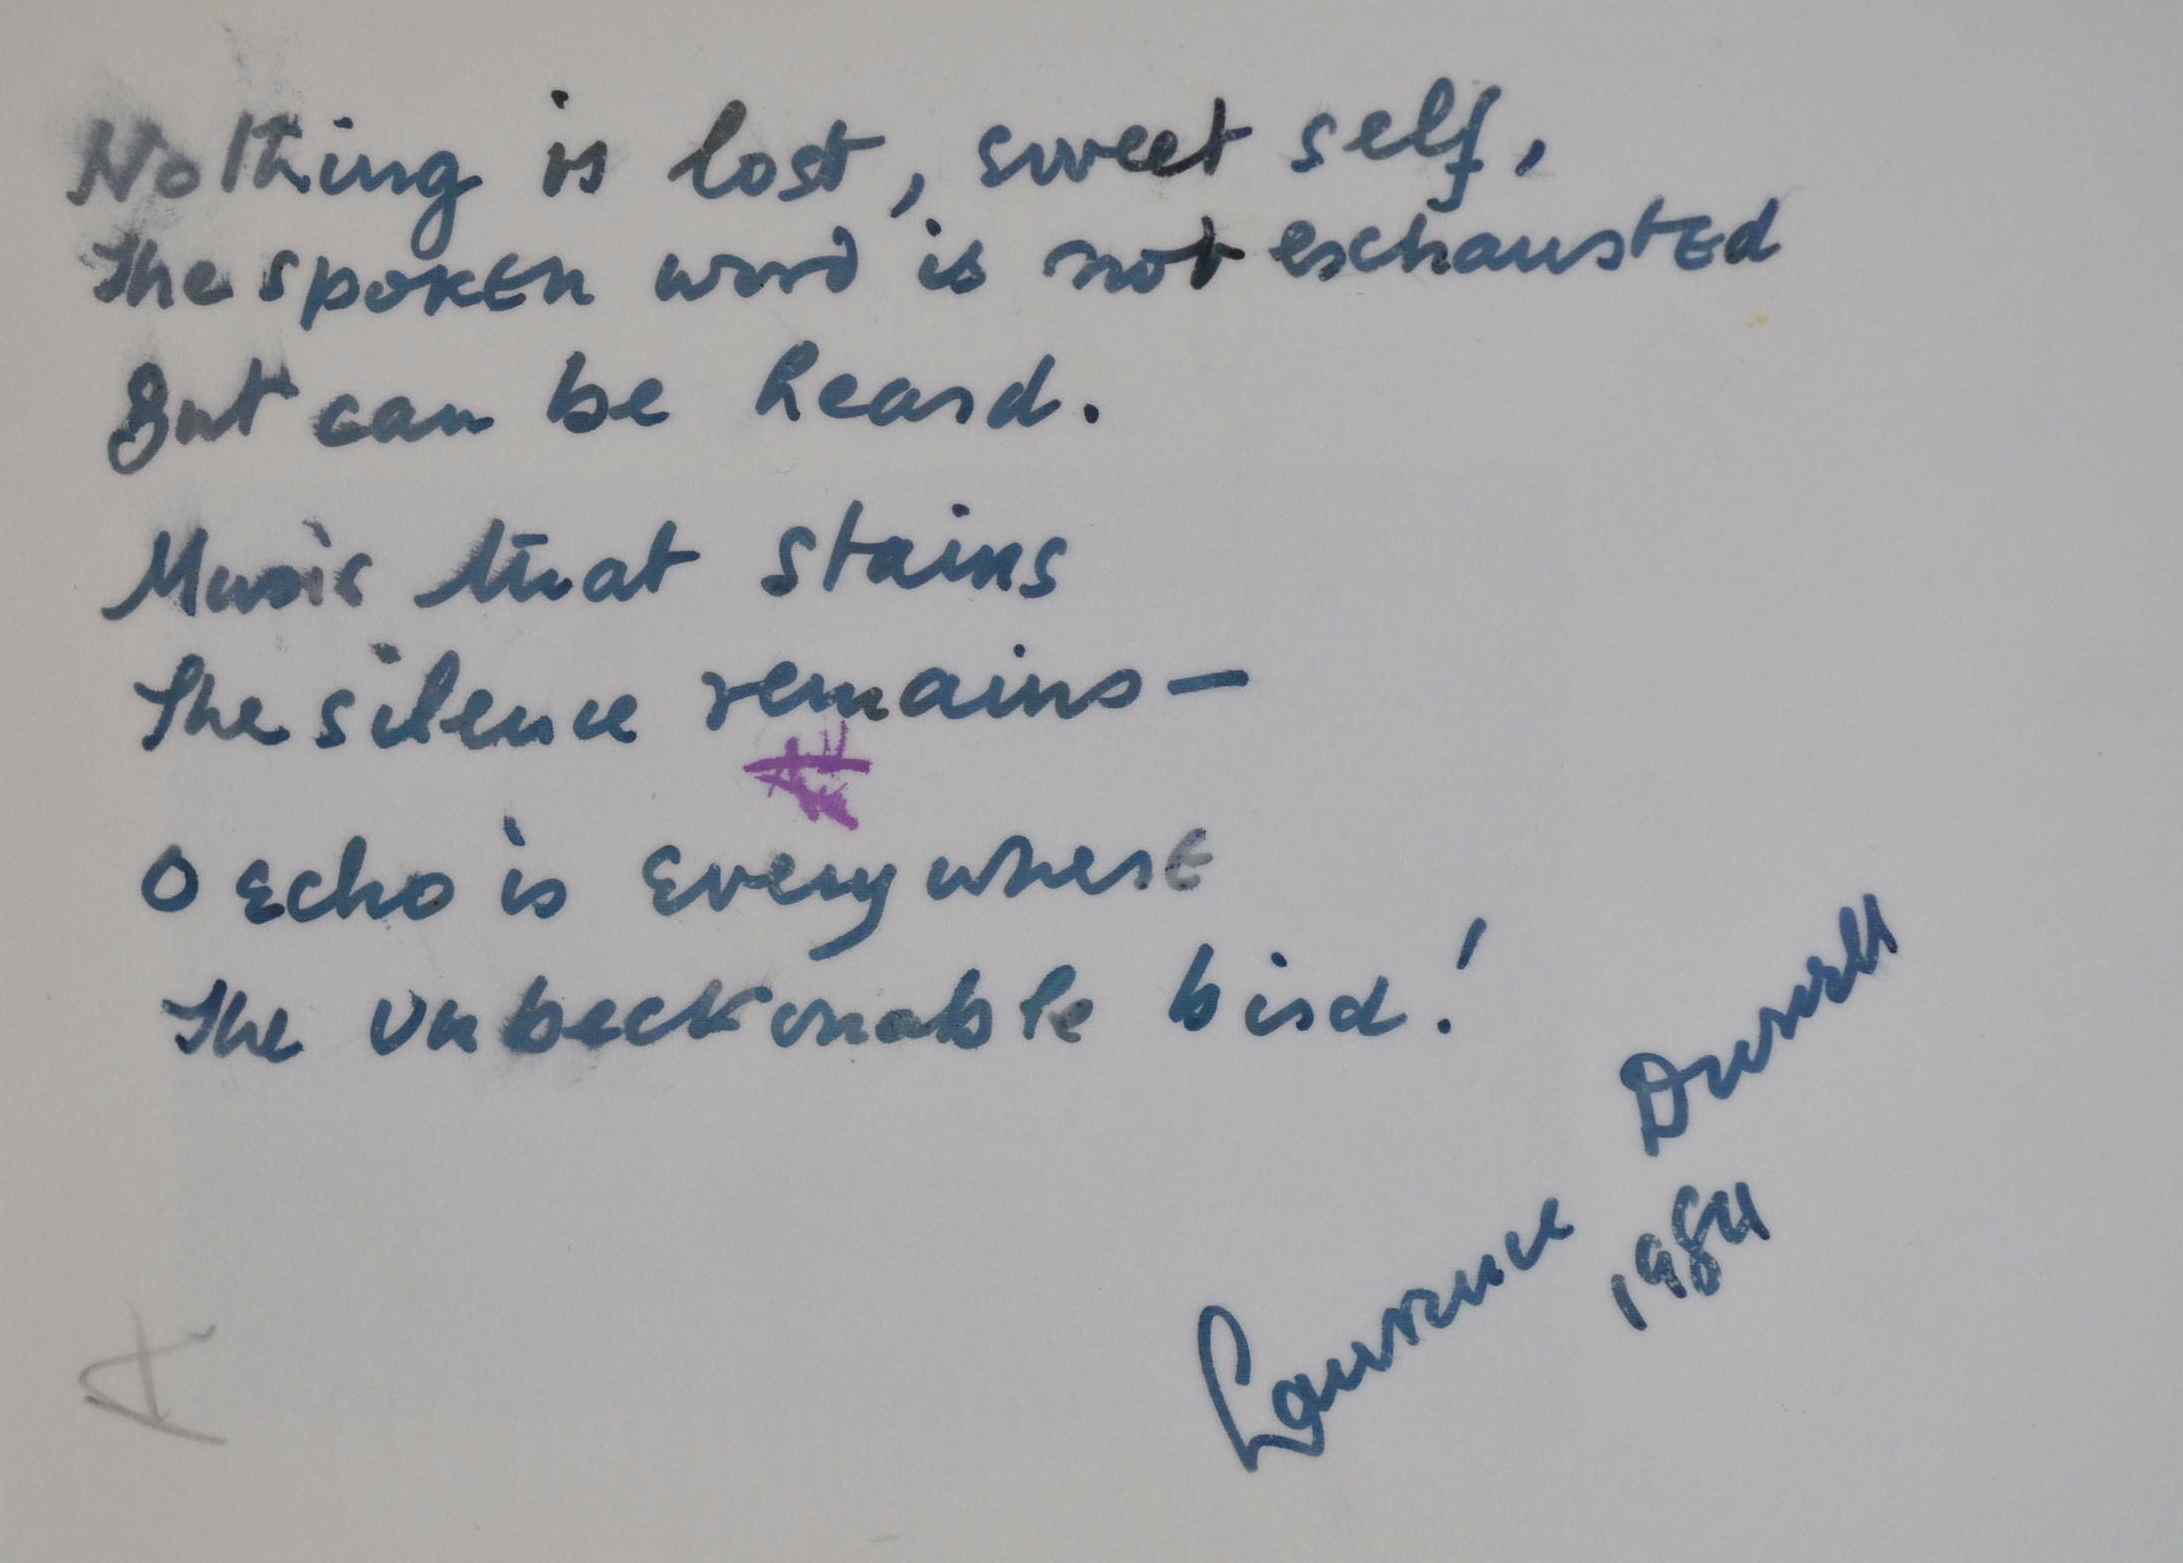 Nothing is lost, sweet self,
The spoken word is not exhausted
But can be heard.
Music that stains
The silence remains —
O Echo is Everywhere
The unbeckonable bird!
Lawrence Durrell
1984